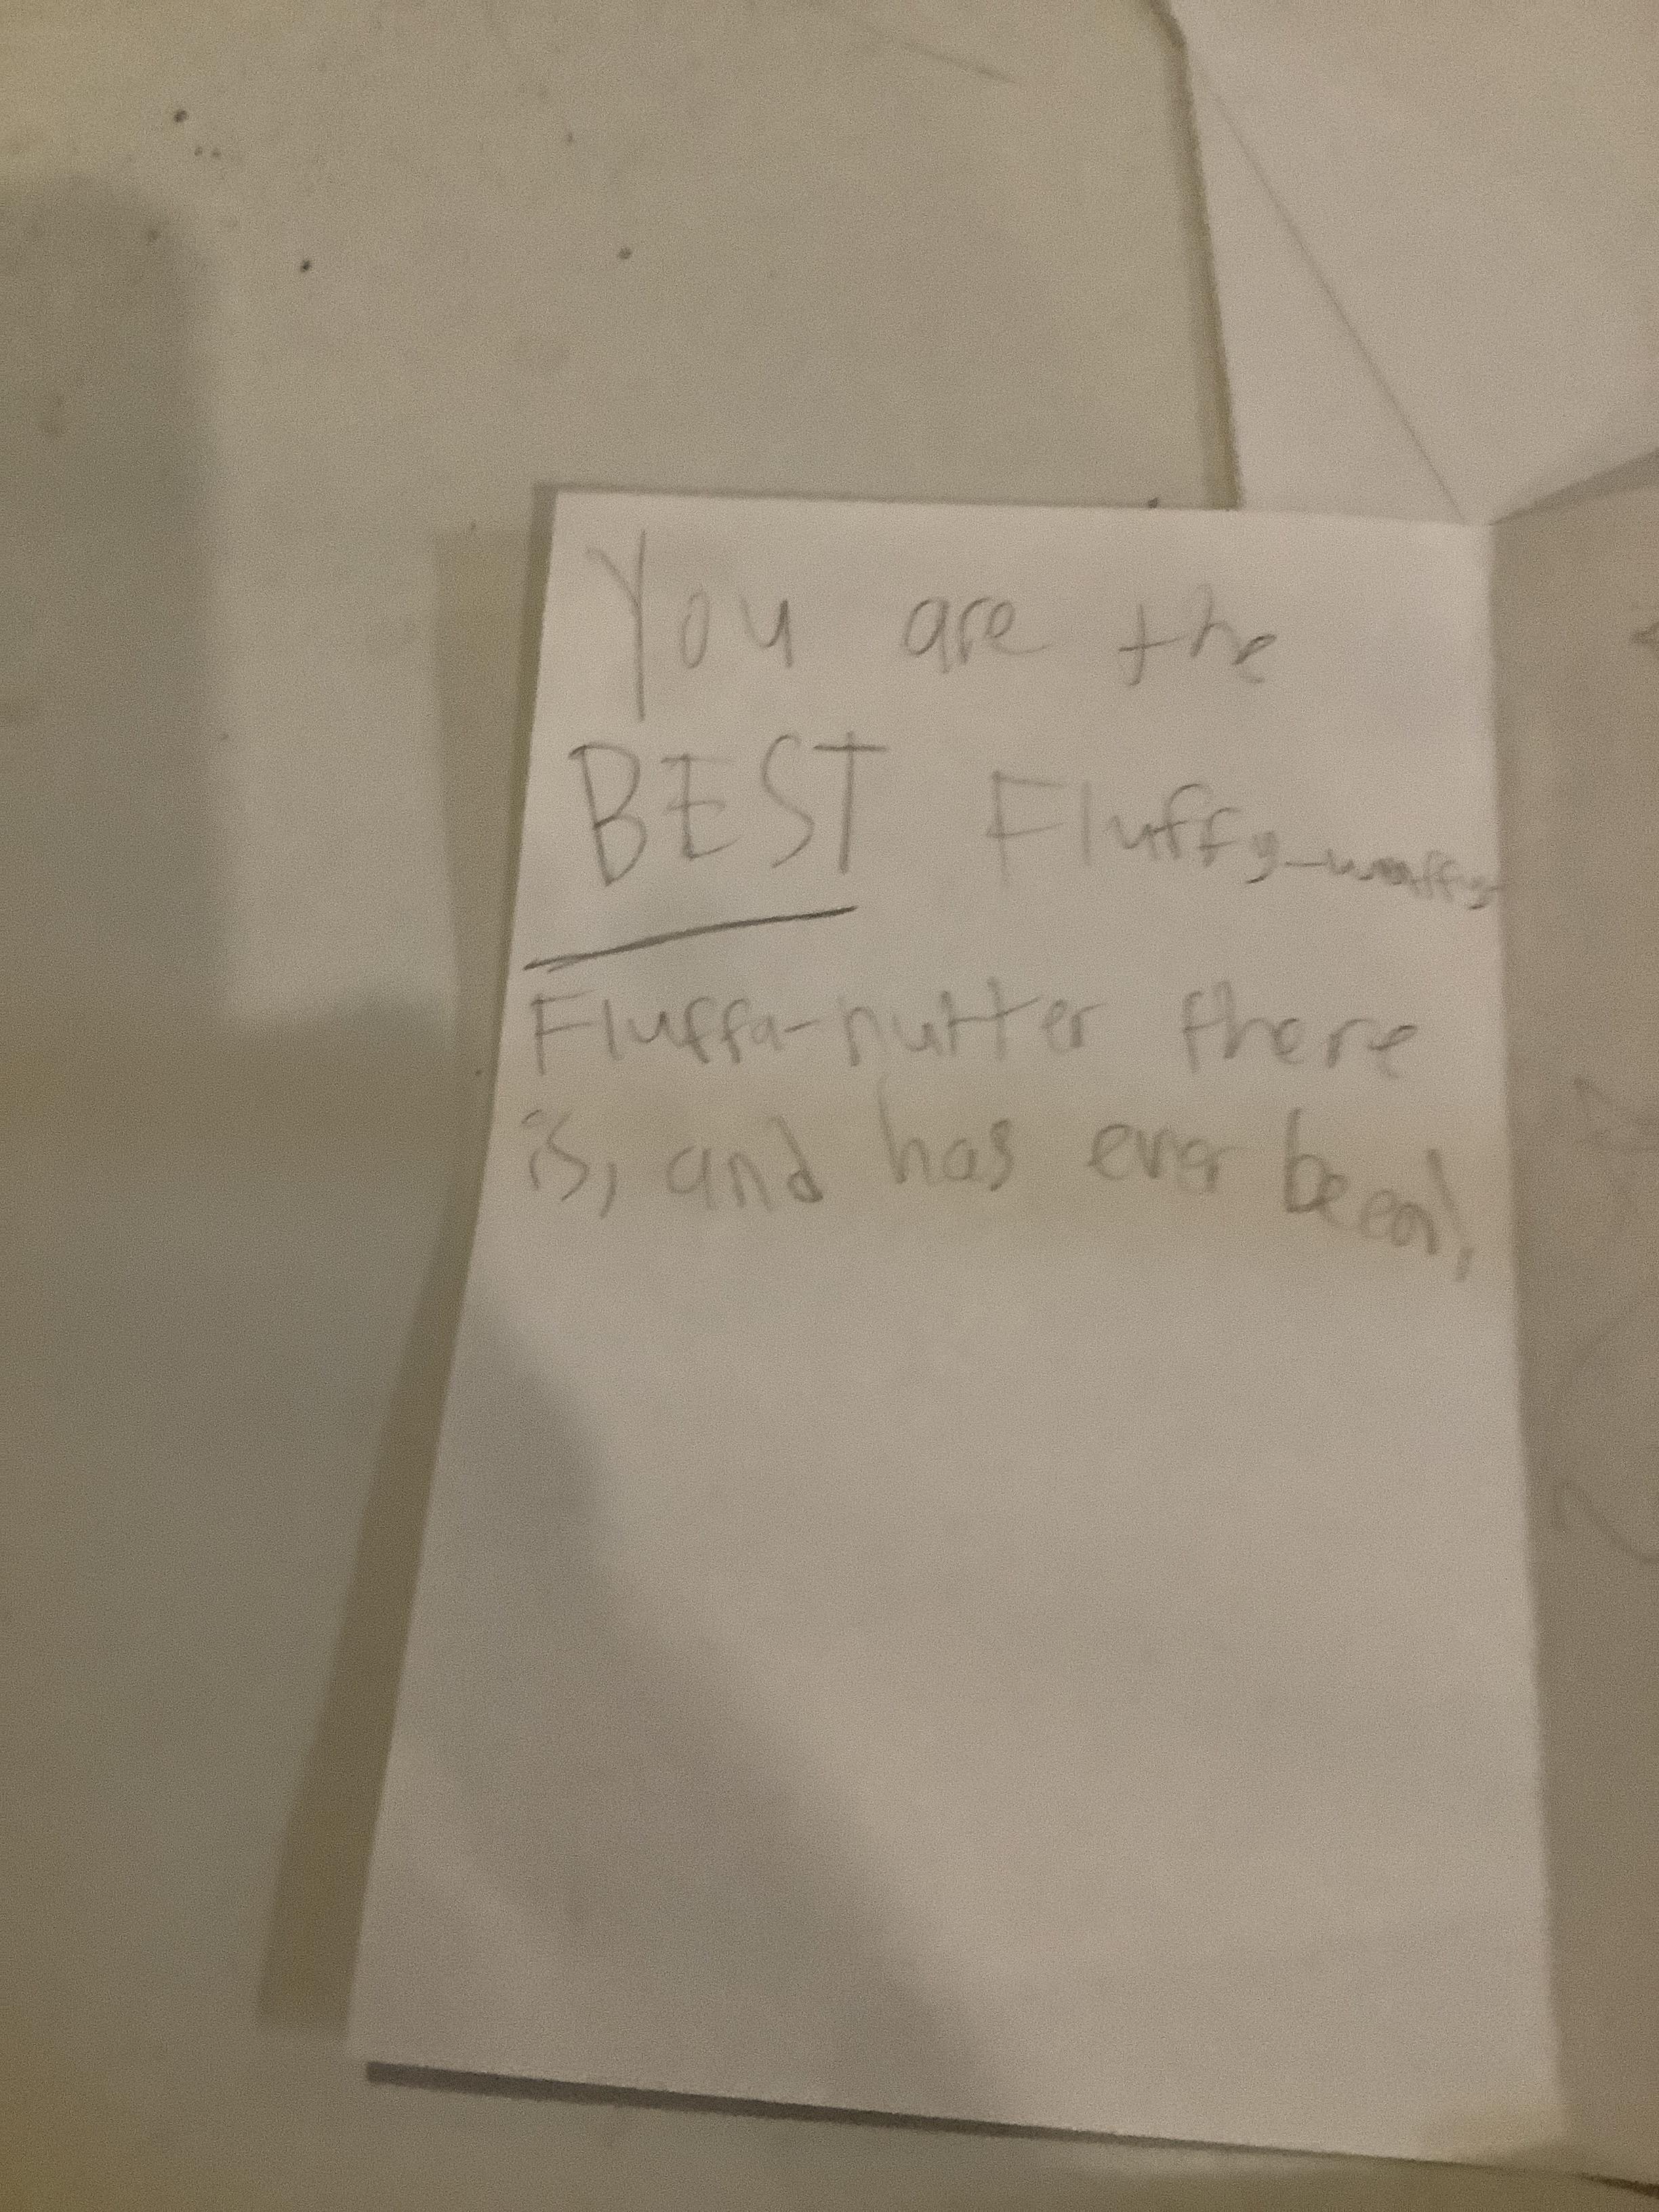 You are the
BEST Fluffy-waffy-
Fluffa-nutter there
is, and has ever been!